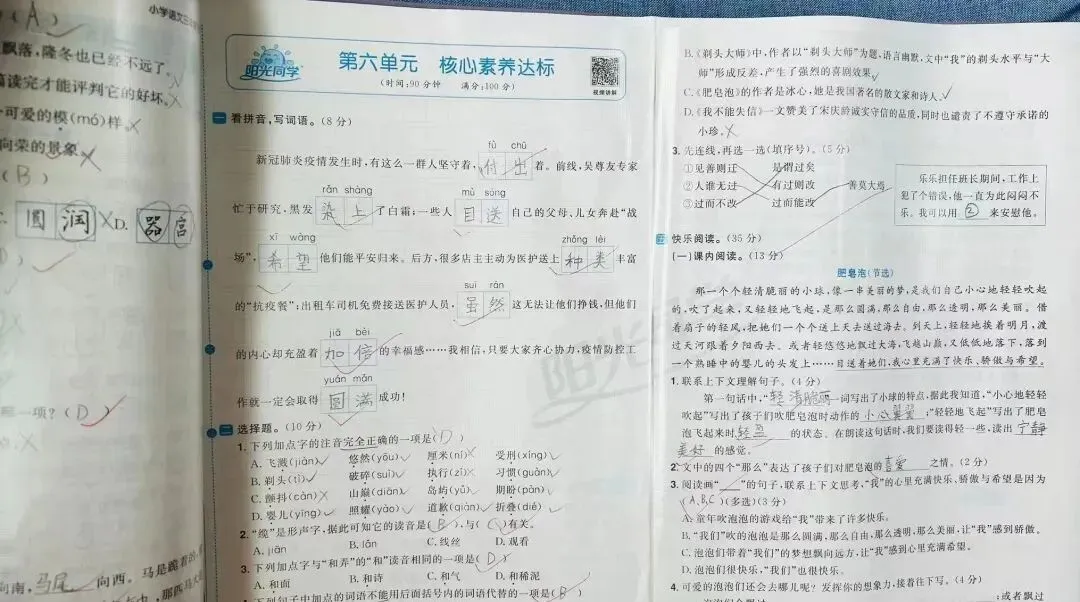 小学语文三
(A)
飘落,隆冬也已经不远了。
读完才能评判它的好坏。
可爱的模(mó)样。
向荣的景象
(B)
圆润 D. 器官
项?(D)
向南,马尾 向西。马是跪着的
阳光同学
第六单元 核心素养达标
(时间:90分钟 满分:100分)
视频讲解
一 看拼音,写词语。(8分)
fù chū
新冠肺炎疫情发生时,有这么一群人坚守着,付出着。前线,吴尊友专家
rǎn shàng mù sòng
忙于研究,黑发染上了白霜;一些人目送自己的父母、儿女奔赴“战
xī wàng zhǒng lèi
场”,希望他们能平安归来。后方,很多店主主动为医护送上种类丰富
suī rán
的“抗疫餐”;出租车司机免费接送医护人员,虽然这无法让他们挣钱,但他们
jiā bèi
的内心却充盈着加倍的幸福感……我相信,只要大家齐心协力,疫情防控工
yuán mǎn
作就一定会取得圆满成功!
二 选择题。(10分)
1. 下列加点字的注音完全正确的一项是(D)
A. 飞溅(jiàn) 悠然(yōu) 厘米(ní) 受刑(xíng)
B. 剃头(tì) 破碎(suì) 执行(zí) 习惯(guàn)
C. 颤抖(càn) 山巅(diān) 岛屿(yǔ) 期盼(pàn)
D. 婴儿(yīng) 照耀(yào) 道歉(qiàn) 折叠(dié)
2. “缆”是形声字,据此可知它的读音是(B),与(C)有关。
A. jiǎn B. lǎn C. 线丝 D. 观看
3. 下列加点字与“和弄”的“和”读音相同的一项是(D)
A. 和面 B. 和诗 C. 和气 D. 和稀泥
下列句子中加点的词语不能用后面括号内的词语代替的一项是(B)
B.《剃头大师》中,作者以“剃头大师”为题,语言幽默,文中“我”的剃头水平与“大
师”形成反差,产生了强烈的喜剧效果。
C.《肥皂泡》的作者是冰心,她是我国著名的散文家和诗人。
D.《我不能失信》一文赞美了宋庆龄诚实守信的品质,同时也谴责了不遵守承诺的
小珍。
3. 先连线,再选一选(填序号)。(5分)
①见善则迁 是谓过矣
②人谁无过 有过则改 善莫大焉
③过而不改 过而能改
乐乐担任班长期间,工作上
犯了个错误,他一直为此闷闷不
乐。我可以用②来安慰他。
快乐阅读。(35分)
(一)课内阅读。(13分)
肥皂泡(节选)
那一个个轻清脆丽的小球,像一串美丽的梦,是我们自己小心地轻轻吹起
的,吹了起来,又轻轻地飞起,是那么圆满,那么自由,那么透明,那么美丽。借
着扇子的轻风,把她们一个个送上天去送过海去。到天上,轻轻地挨着明月,渡
过天河跟着夕阳西去。或者轻悠悠地飘过大海,飞越山巅,又低低地落下,落到
一个熟睡中的婴儿的头发上……目送着她们,我心里充满了快乐、骄傲与希望。
1. 联系上下文理解句子。(4分)
第一句话中,“轻清脆丽”一词写出了小球的特点,据此我知道,“小心地轻轻
吹起”写出了孩子们吹肥皂泡时动作的小心翼翼;“轻轻地飞起”写出了肥皂
泡飞起来时轻盈的状态。在朗读这句话时,我们要读得轻一些,读出宁静
美好的感觉。
2. 文中的四个“那么”表达了孩子们对肥皂泡的喜爱之情。(2分)
3. 阅读画“ ”的句子,联系上下文思考,“我”的心里充满快乐、骄傲与希望是因为
(A,B,C)(多选)(3分)
A. 童年吹泡泡的游戏给“我”带来了许多快乐。
B. “我们”吹的泡泡是那么圆满,那么自由,那么透明,那么美丽,让“我”感到骄傲。
C. 泡泡们带着“我们”的梦想飘向远方,让“我”感到心里充满希望。
D. 泡泡们很快乐,“我们”也很快乐。
4. 可爱的泡泡们还会去哪儿呢?发挥你的想象力,接着往下写。(4分)
;或者飘过